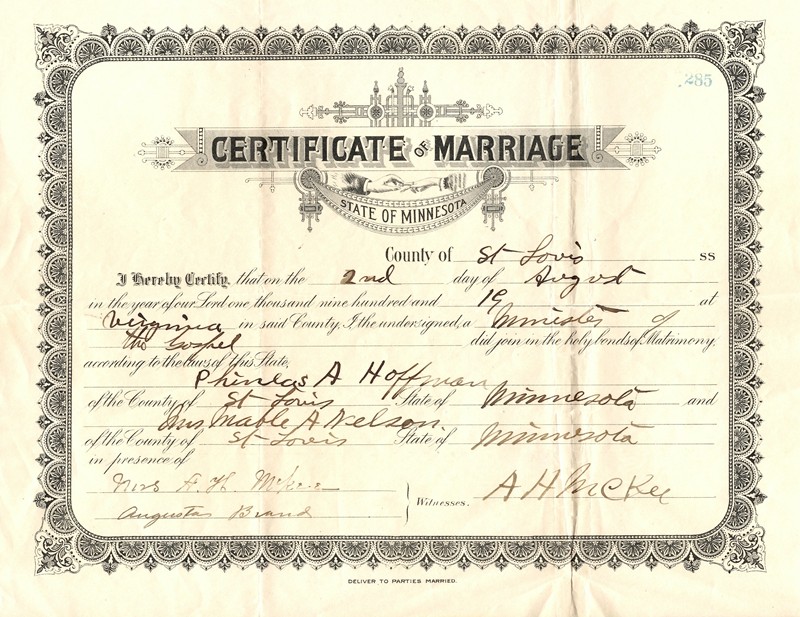 .285
CERTIFICATE OF MARRIAGE
STATE OF MINNESOTA
County of St Louis ss
I Hereby Certify, that on the 2nd day of August
in the year of our Lord one thousand nine hundred and 19 at
Virginia in said County, I, the undersigned, a Minister of
the Gospel did join in the holy bonds of Matrimony,
according to the laws of this State,
Phineas A Hoffman
of the County of St Louis State of Minnesota and
Mable A Nelson
of the County of St Louis State of Minnesota
in presence of
Mrs A. H. McKee
Augustas Brand
Witnesses.
A H McKee
DELIVER TO PARTIES MARRIED.